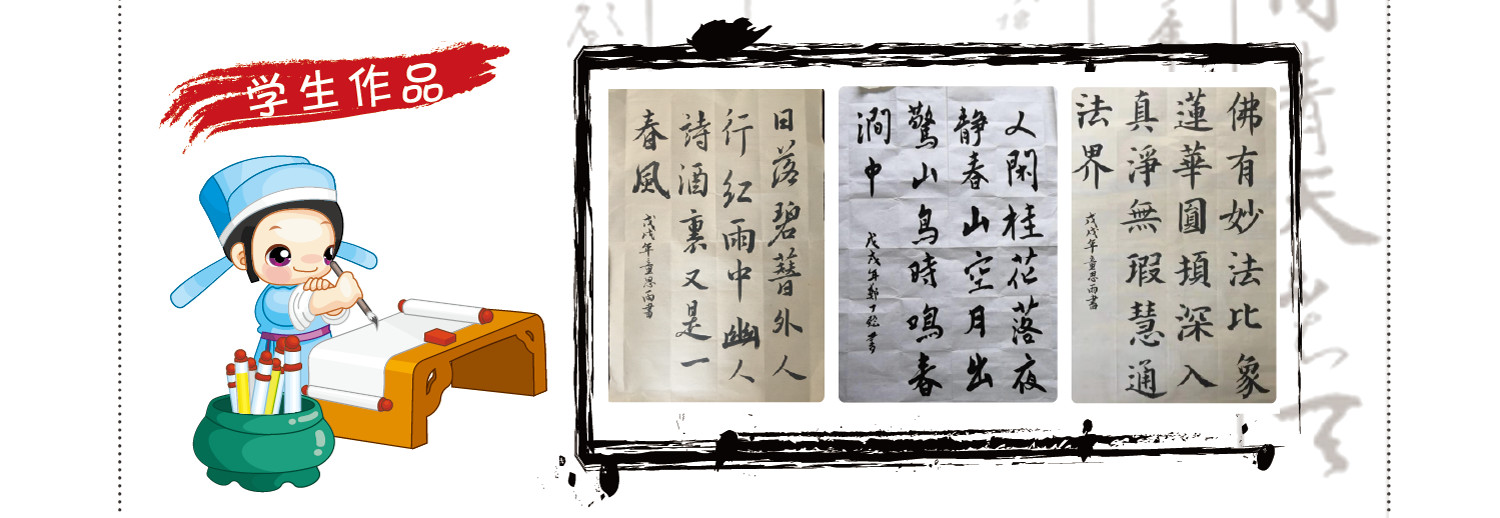 学生作品
日落碧簪外人
行红雨中幽人
詩酒裏又是一
春風
戊戌年童思雨書
人閑桂花落夜
静春山空月出
驚山鳥時鳴春
澗中
戊戌年
佛有妙法比象
蓮華圓頓深入
真淨無瑕慧通
法界
戊戌年童思雨書